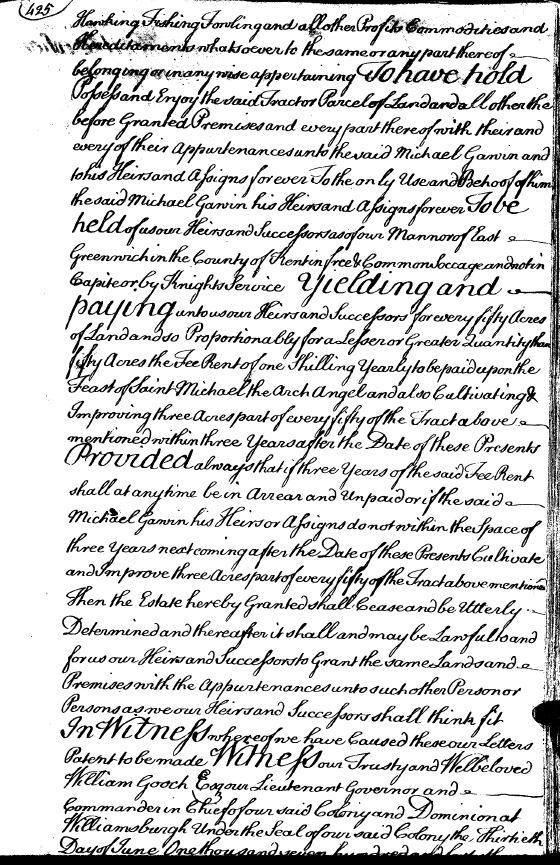 425
Hawking Fishing Fowling and all other Profits Commodities and
Hereditaments whatsoever to the same or any part thereof
belonging or in any wise appertaining To have hold
Possess and Enjoy the said Tract or Parcel of Land and all other the
before Granted Premises and every part thereof with their and
every of their Appurtenances unto the said Michael Gawin and
to his Heirs and Assigns forever To the only Use and Behoof of him
the said Michael Gawin his Heirs and Assigns forever To be
held of us our Heirs and Successors as of our Mannor of East
Greenwich in the County of Kent in free & Common Soccage and not in
Capite or by Knights Service Yielding and
paying unto us our Heirs and Successors for every fifty Acres
of Land and so Proportionably for a Lesser or Greater Quantity than
fifty Acres the Fee Rent of one Shilling Yearly to be paid upon the
Feast of Saint Michael the Arch Angel and also Cultivating &
Improving three Acres part of every fifty of the Tract above
mentioned within three Years after the Date of these Presents
Provided always that if three Years of the said Fee Rent
shall at any time be in Arrear and Unpaid or if the said
Michael Gawin his Heirs or Assigns do not within the Space of
three Years next coming after the Date of these Presents Cultivate
and Improve three Acres part of every fifty of the Tract above mentioned
Then the Estate hereby Granted shall Cease and be Utterly
Determined and thereafter it shall and may be Lawful to and
for us our Heirs and Successors to Grant the same Lands and
Premises with the Appurtenances unto such other Person or
Persons as we our Heirs and Successors shall think fit
In Witness whereof we have Caused these our Letters
Patent to be made Witness our Trusty and Welbeloved
William Gooch Esqr our Lieutenant Governor and
Commander in Chief of our said Colony and Dominion at
Williamsburgh Under the Seal of our said Colony the Thirtieth
Day of June One thousand seven hundred and